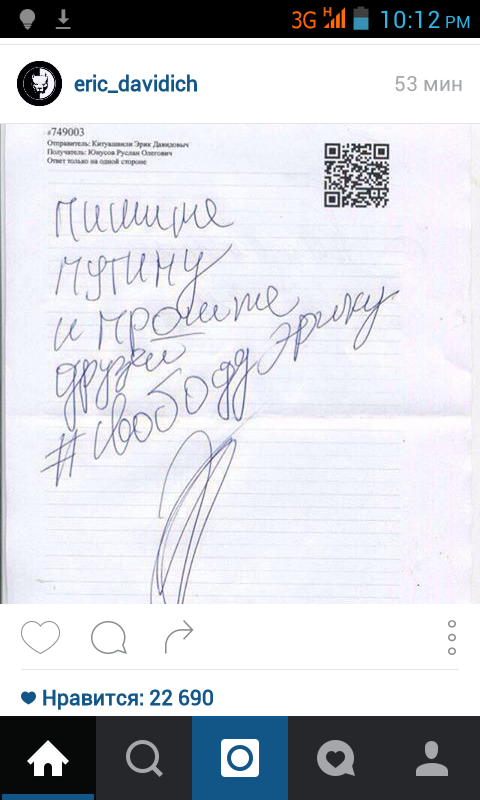 3G H 10:12 PM
eric_davidich 53 мин
#749003
Отправитель: Китуашвили Эрик Давидович
Получатель: Юнусов Руслан Олегович
Ответ только на одной стороне
пишите
путину
и просите
друзья
#свободу Эрику
Нравится: 22 690